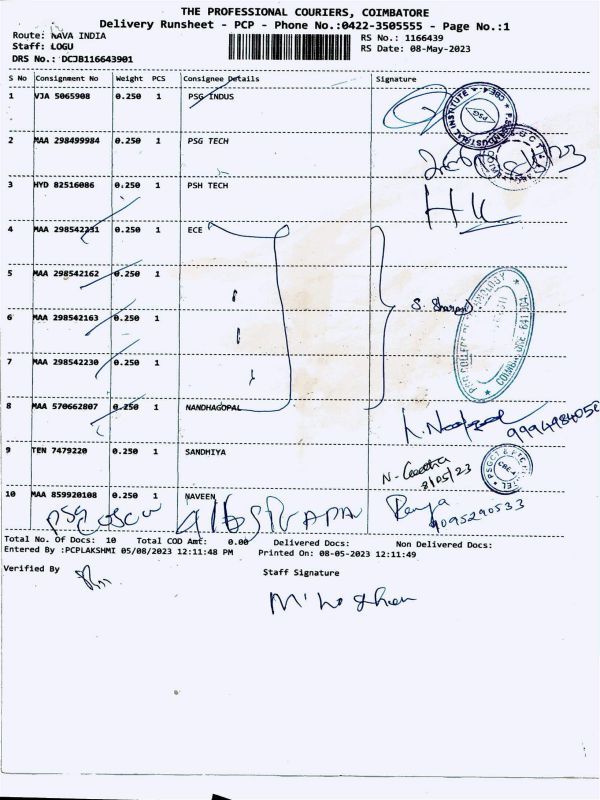 THE PROFESSIONAL COURIERS, COIMBATORE
Delivery Runsheet - PCP - Phone No.:0422-3505555 - Page No.:1
Route: NAVA INDIA
RS No.: 1166439
Staff: LOGU
RS Date: 08-May-2023
DRS No.: DCJB116643901
S No Consignment No Weight PCS Consignee Details Signature
1 VJA 5065908 0.250 1 PSG INDUS
2 MAA 298499984 0.250 1 PSG TECH
3 HYD 82516086 0.250 1 PSH TECH
4 MAA 298542231 0.250 1 ECE
5 MAA 298542162 0.250 1
6 MAA 298542163 0.250 1
S. Sharani
7 MAA 298542230 0.250 1
8 MAA 570662807 0.250 1 NANDHAGOPAL
9994984050
9 TEN 7479220 0.250 1 SANDHIYA
N. Geetha
8/05/23
10 MAA 859920108 0.250 1 NAVEEN
Renya
9095290533
Total No. Of Docs: 10 Total COD Amt: 0.00 Delivered Docs: Non Delivered Docs:
Entered By :PCPLAKSHMI 05/08/2023 12:11:48 PM Printed On: 08-05-2023 12:11:49
Verified By
Staff Signature